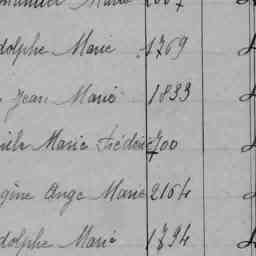 Marie
dolphe Marie 1769
Jean Marie 1833
Marie Frédéric 700
gène Ange Marie 2164
dolphe Marie 1894